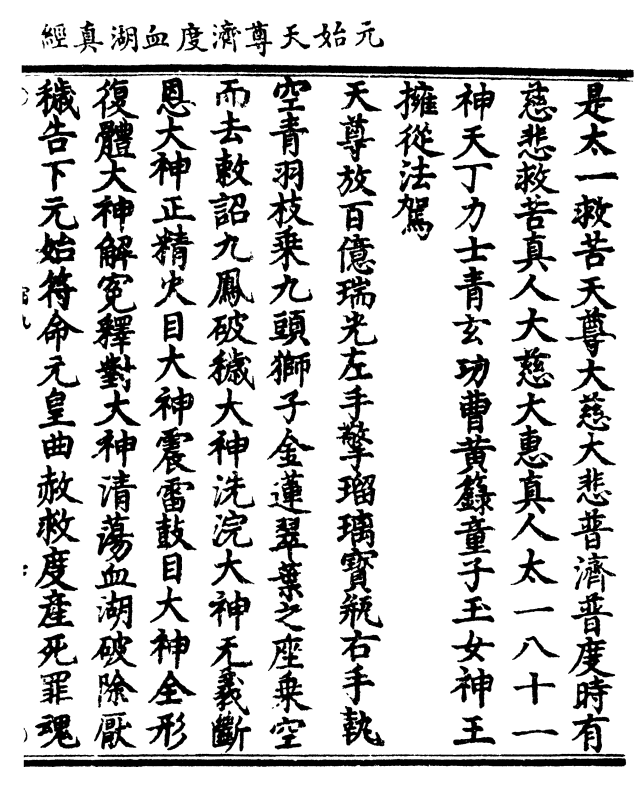 元始天尊濟度血湖真經
是太一救苦天尊大慈大悲普濟普度時有
慈悲救苦真人大慈大惠真人太一八十一
神天丁力士青玄功曹黃籙童子玉女神王
擁從法駕
天尊放百億瑞光左手擎瑠璃寶瓶右手執
空青羽枝乘九頭獅子金蓮翠葉之座乘空
而去敕詔九鳳破穢大神洗浣大神无義斷
恩大神正精火目大神震雷鼓目大神全形
復體大神解冤釋對大神清蕩血湖破除厭
穢告下元始符命元皇曲赦救度產死罪魂